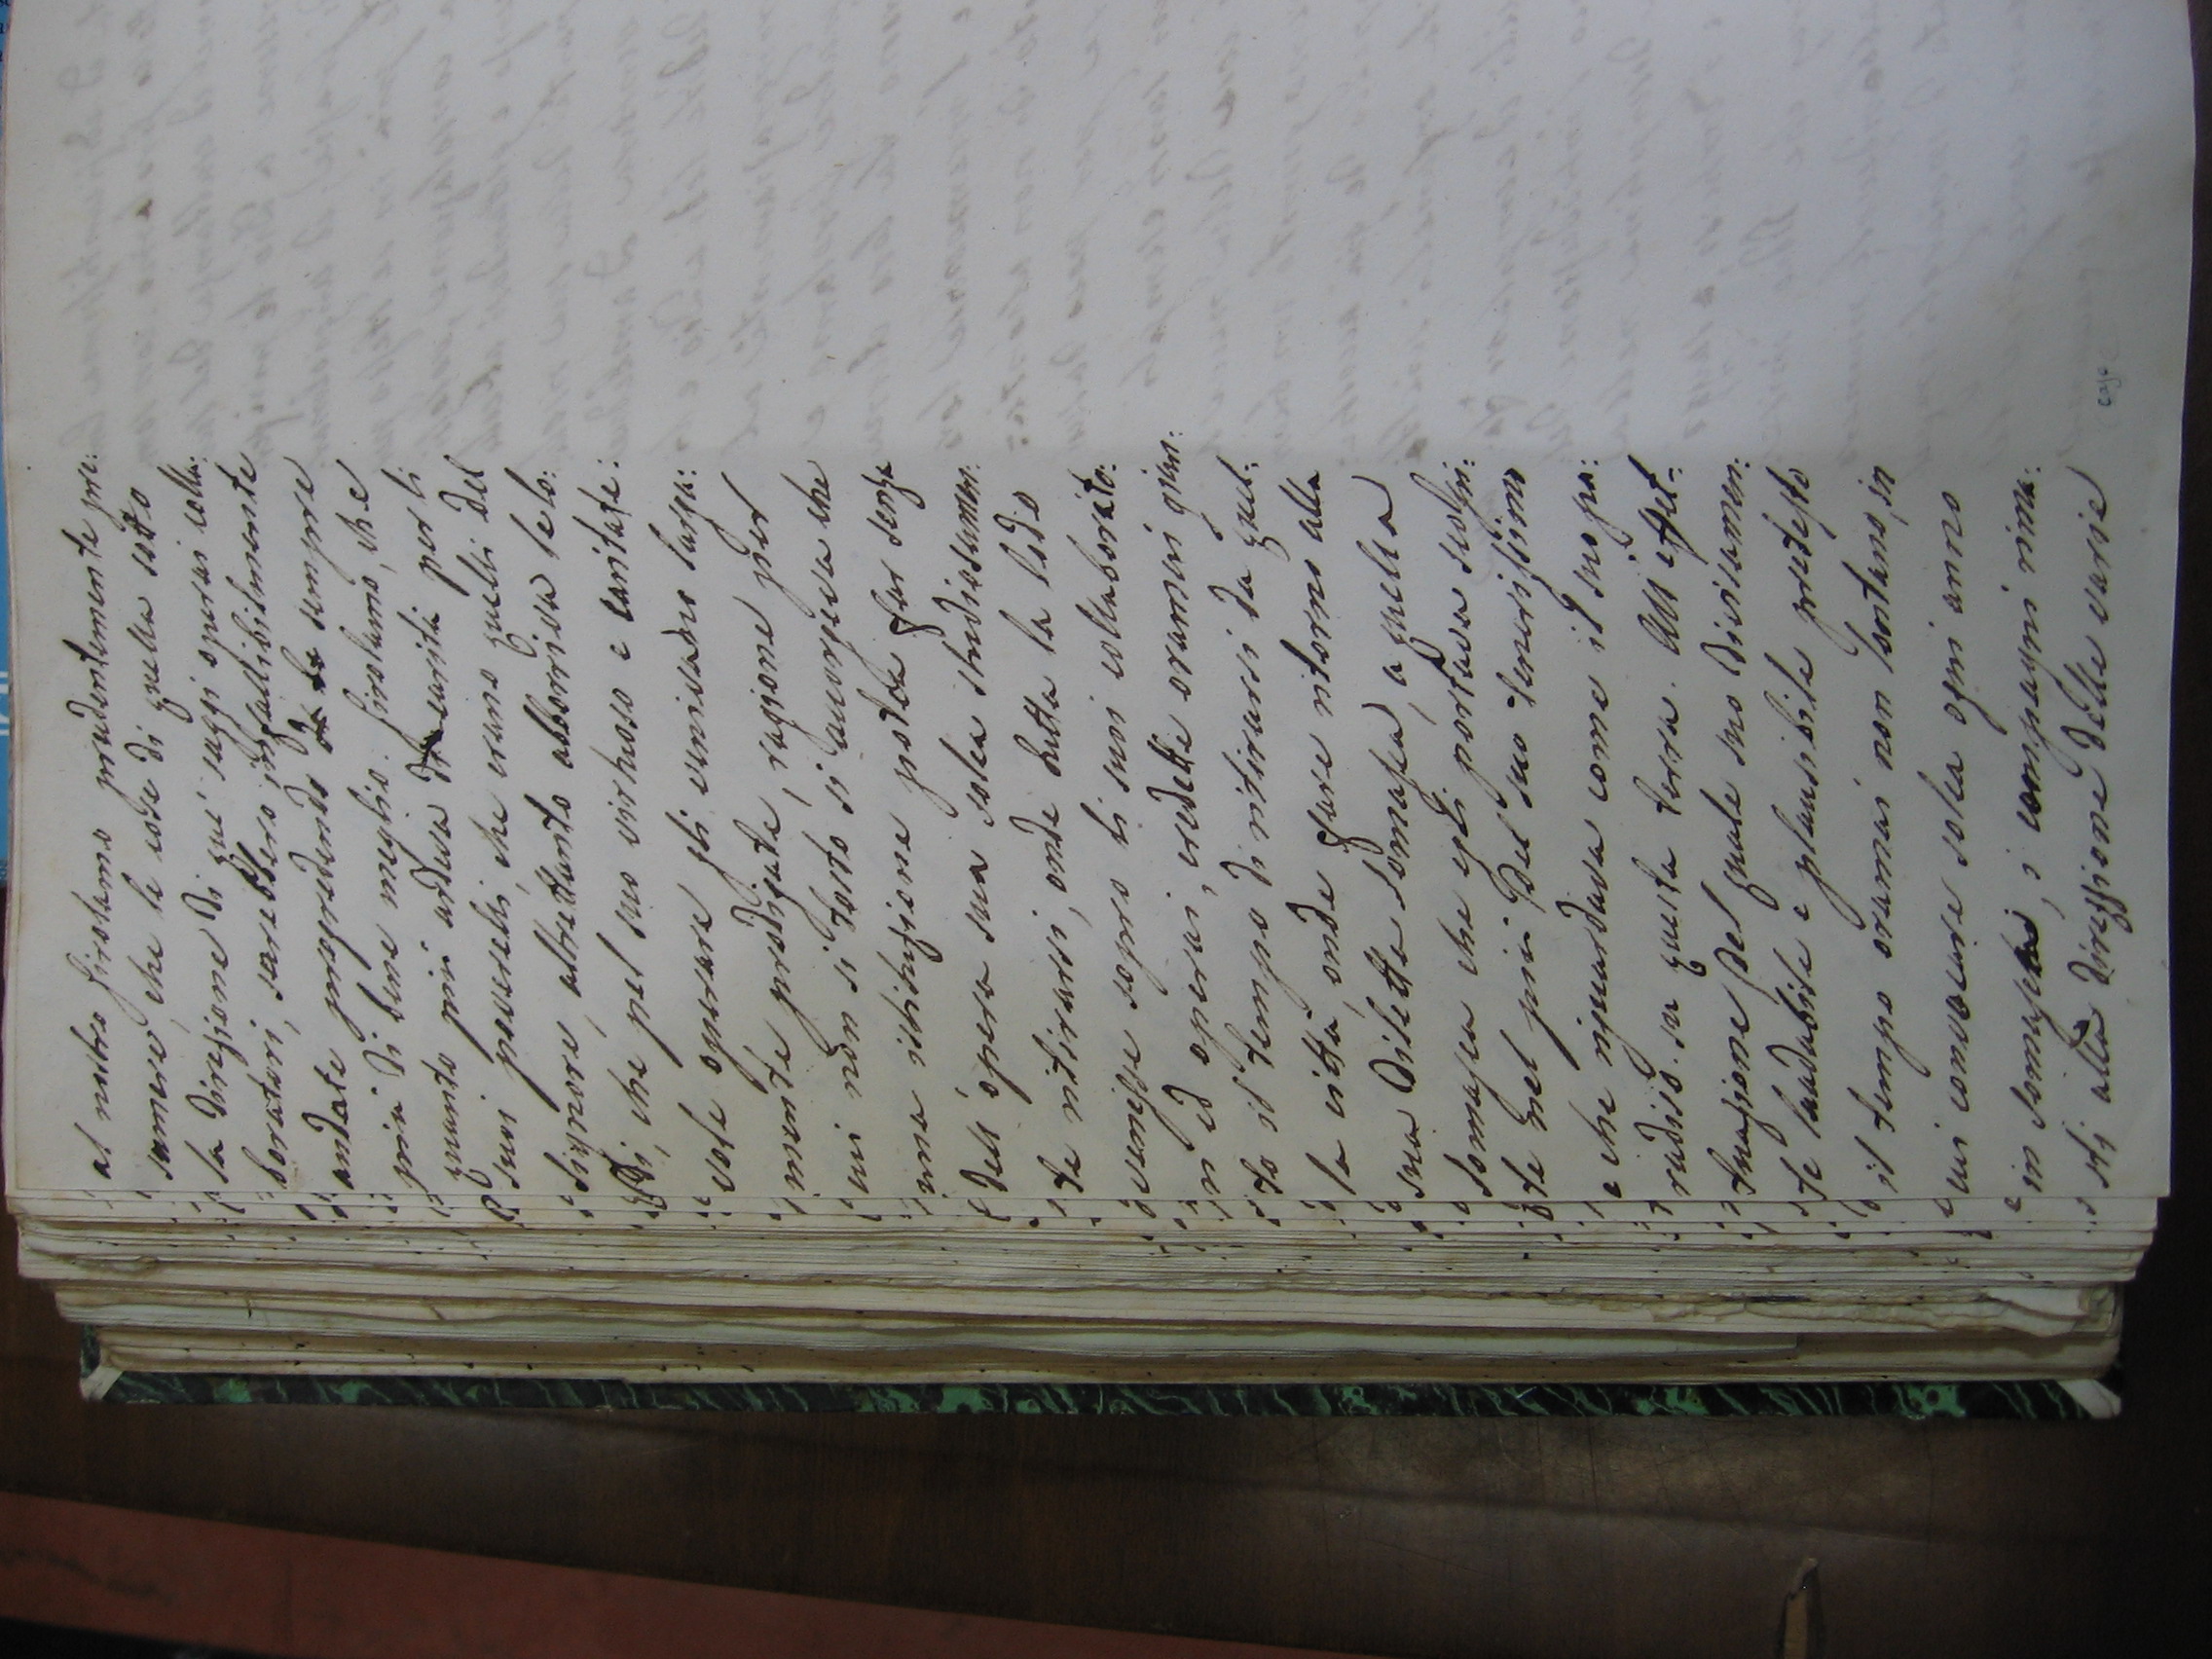 al nostro Girolamo prudentemente pre:
sumere, che le cose di quella sotto
la direzione di quei saggi operai colla:
boratori, sarebbero infallibilmente
andate progredendo sempre
più di bene meglio. Girolamo, che
quanto più ardeva di carità per li
suoi poverelli, che erano quelli del
Signore, altrettanto abborriva le lo:
di, che pel suo virtuoso e caritate:
vole operare gli venivano larga:
mente prodigate, ragione per
cui non si tosto si accorgeva che
una istituzione potea star senza
dell'opera sua solea studiosamen:
te ritirarsi, onde tutta la lode
venisse sopra li suoi collaborato:
ri ed operai, credette oramai giun:
to il tempo di ritirarsi da quel:
la città, onde fare ritorno alla
sua diletta Somasca, a quella
Somasca che egli portava scolpi:
ta nel più del suo tenerissimo
e che riguardava come il suo pa:
radiso su questa terra. All'effet:
tuazione del quale suo divisamen:
to laudabile e plausibile pretesto
il tempo oramai non lontano, in
cui convocare solea ogni anno
in Somasca, i compagni rima:
sti alla direzzione delle varie
case